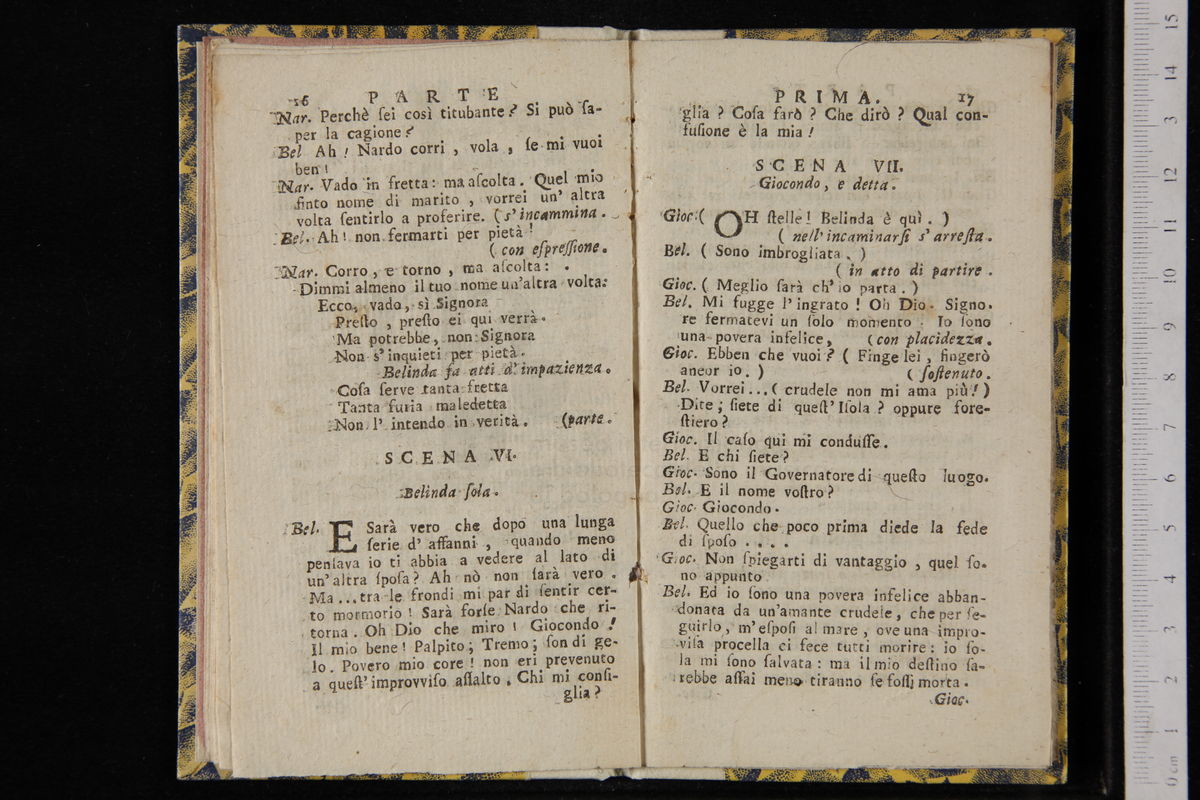 16 PARTE
Nar. Perchè ſei così titubante? Si può ſa-
per la cagione?
Bel. Ah! Nardo corri, vola, ſe mi vuoi
ben!
Nar. Vado in fretta: ma aſcolta. Quel mio
finto nome di marito, vorrei un' altra
volta ſentirlo a proferire. (s'incammina.
Bel. Ah! non fermarti per pietà!
(con eſpreſſione.
Nar. Corro, e torno, ma aſcolta:
Dimmi almeno il tuo nome un'altra volta:
Ecco, vado, sì Signora
Preſto, preſto ei qui verrà.
Ma potrebbe, non Signora
Non s'inquieti per pietà.
Belinda fa atti d'impazienza.
Coſa ſerve tanta fretta
Tanta furia maledetta
Non l'intendo in verità. (parte.
SCENA VI.
Belinda ſola.
Bel. E Sarà vero che dopo una lunga
ſerie d' affanni, quando meno
penſava io ti abbia a vedere al lato di
un'altra ſpoſa? Ah nò non ſarà vero.
Ma... tra le frondi mi par di ſentir cer-
to mormorio! Sarà forſe Nardo che ri-
torna. Oh Dio che miro! Giocondo!
Il mio bene! Palpito; Tremo; ſon di ge-
lo. Povero mio core! non eri prevenuto
a queſt'improvviſo aſſalto. Chi mi conſi-
glia?
PRIMA. 17
glia? Coſa farò? Che dirò? Qual con-
fuſione è la mia!
SCENA VII.
Giocondo, e detta.
Gioc. (OH ſtelle! Belinda è quì.)
(nell'incaminarſi s'arreſta.
Bel. (Sono imbrogliata.)
(in atto di partire.
Gioc. (Meglio ſarà ch'io parta.)
Bel. Mi fugge l'ingrato! Oh Dio. Signo-
re fermatevi un ſolo momento. Io ſono
una povera infelice, (con placidezza.
Gioc. Ebben che vuoi? (Finge lei, fingerò
ancor io.) (ſoſtenuto.
Bel. Vorrei... (crudele non mi ama più!)
Dite; ſiete di queſt'Iſola? oppure fore-
ſtiero?
Gioc. Il caſo qui mi conduſſe.
Bel. E chi ſiete?
Gioc. Sono il Governatore di queſto luogo.
Bel. E il nome voſtro?
Gioc. Giocondo.
Bel. Quello che poco prima diede la fede
di ſpoſo....
Gioc. Non ſpiegarti di vantaggio, quel ſo-
no appunto.
Bel. Ed io ſono una povera infelice abban-
donata da un'amante crudele, che per ſe-
guirlo, m'eſpoſi al mare, ove una impro-
viſa procella ci fece tutti morire: io ſo-
la mi ſono ſalvata: ma il mio deſtino ſa-
rebbe aſſai meno tiranno ſe foſſi morta.
Gioc.
0 cm 1 2 3 4 5 6 7 8 9 10 11 12 13 14 15